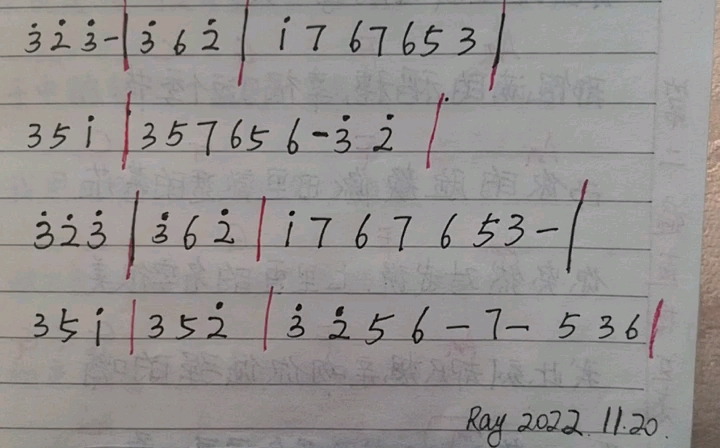 3̇ 2̇ 3̇ - | 3̇ 6 2̇ | i 7 6 7 6 5 3 |
3 5 i | 3 5 7 6 5 6 - 3̇ 2̇ |
3̇ 2̇ 3̇ | 3̇ 6 2̇ | i 7 6 7 6 5 3 - |
3 5 i | 3 5 2̇ | 3̇ 2̇ 5 6 - 7 - 5 3 6 |
Ray 2022. 11.20.